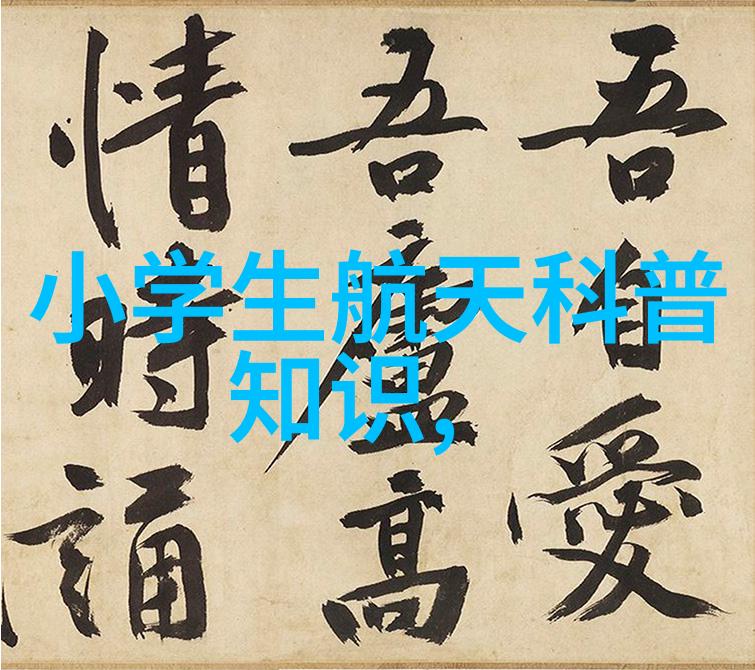 小学生航天科普
知识,
吾自愛
吾廬高
情時誦